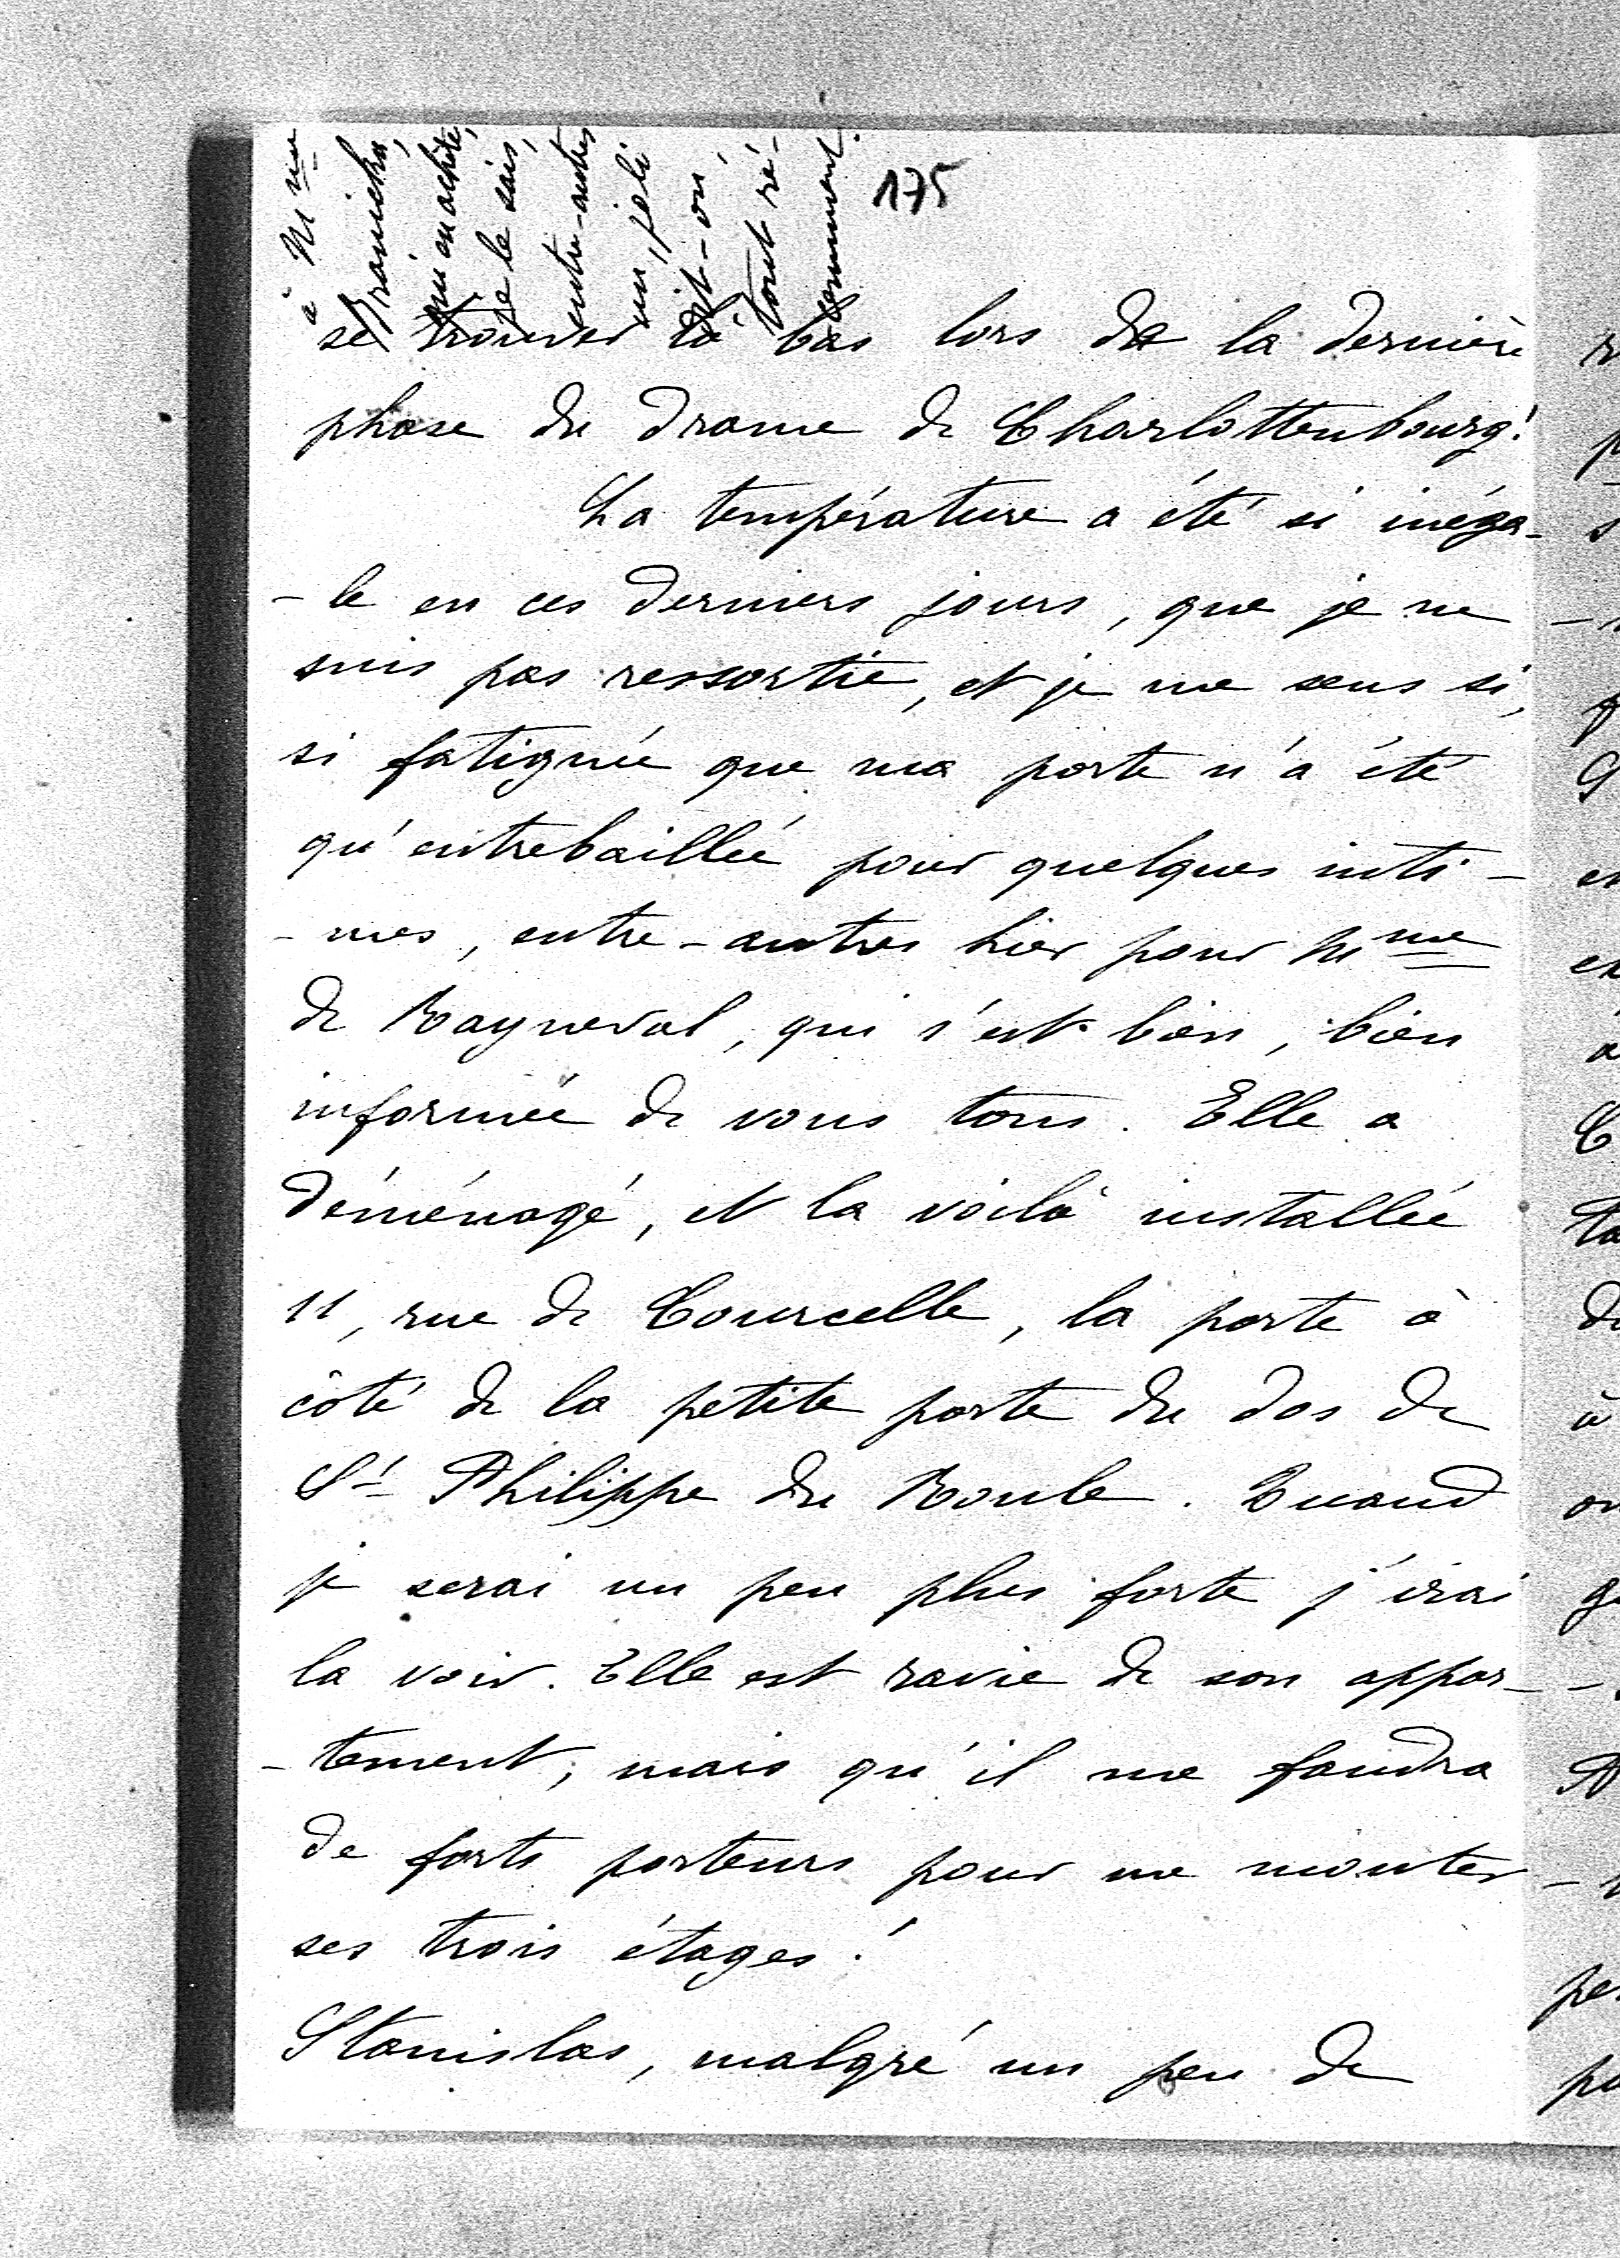 175
à Mme
Branicka,
qui en achète,
je le sais,
entre-autres
un, joli
dit-on
tout ré-
cemment.
se trouver là bas lors de la dernière
phase du drame de Charlottenbourg!
La température a été si inéga-
-le en ces derniers jours, que je ne
suis pas ressortie, et je me sens si,
si fatiguée que ma porte n'a été
qu'entrebaillée pour quelques inti-
-mes, entre-autres hier pour Mme
de Rayneval, qui s'est bien, bien
informée de vous tous. Elle a
déménagé, et la voilà installée
11, rue de Courcelle, la porte à
côté de la petite porte du dos de
St Philippe du Roule. Quand
je serai un peu plus forte j'irai
la voir. Elle est ravie de son appar-
-tement; mais qu'il me faudra
de forts porteurs pour me monter
ses trois étages!
Stanislas, malgré un peu de